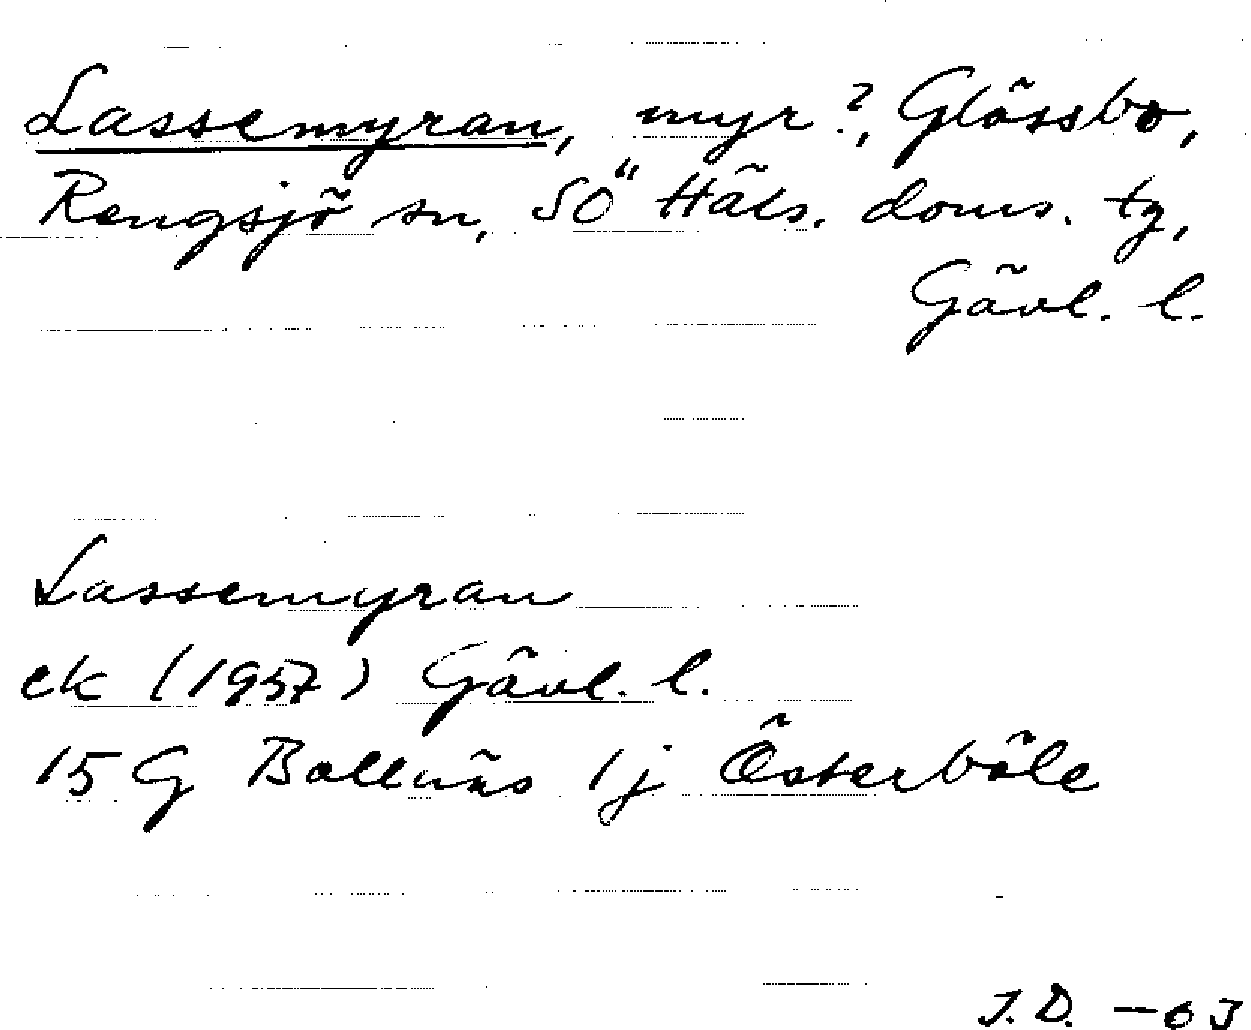 Lassemyran, myr?, Glössbo,
Rengsjö sn, SÖ Häls. doms. tg,
Gävl. l.
Lassemyran
ek (1957) Gävl. l.
15 G Bollnäs 1j Österböle
J.D. -63